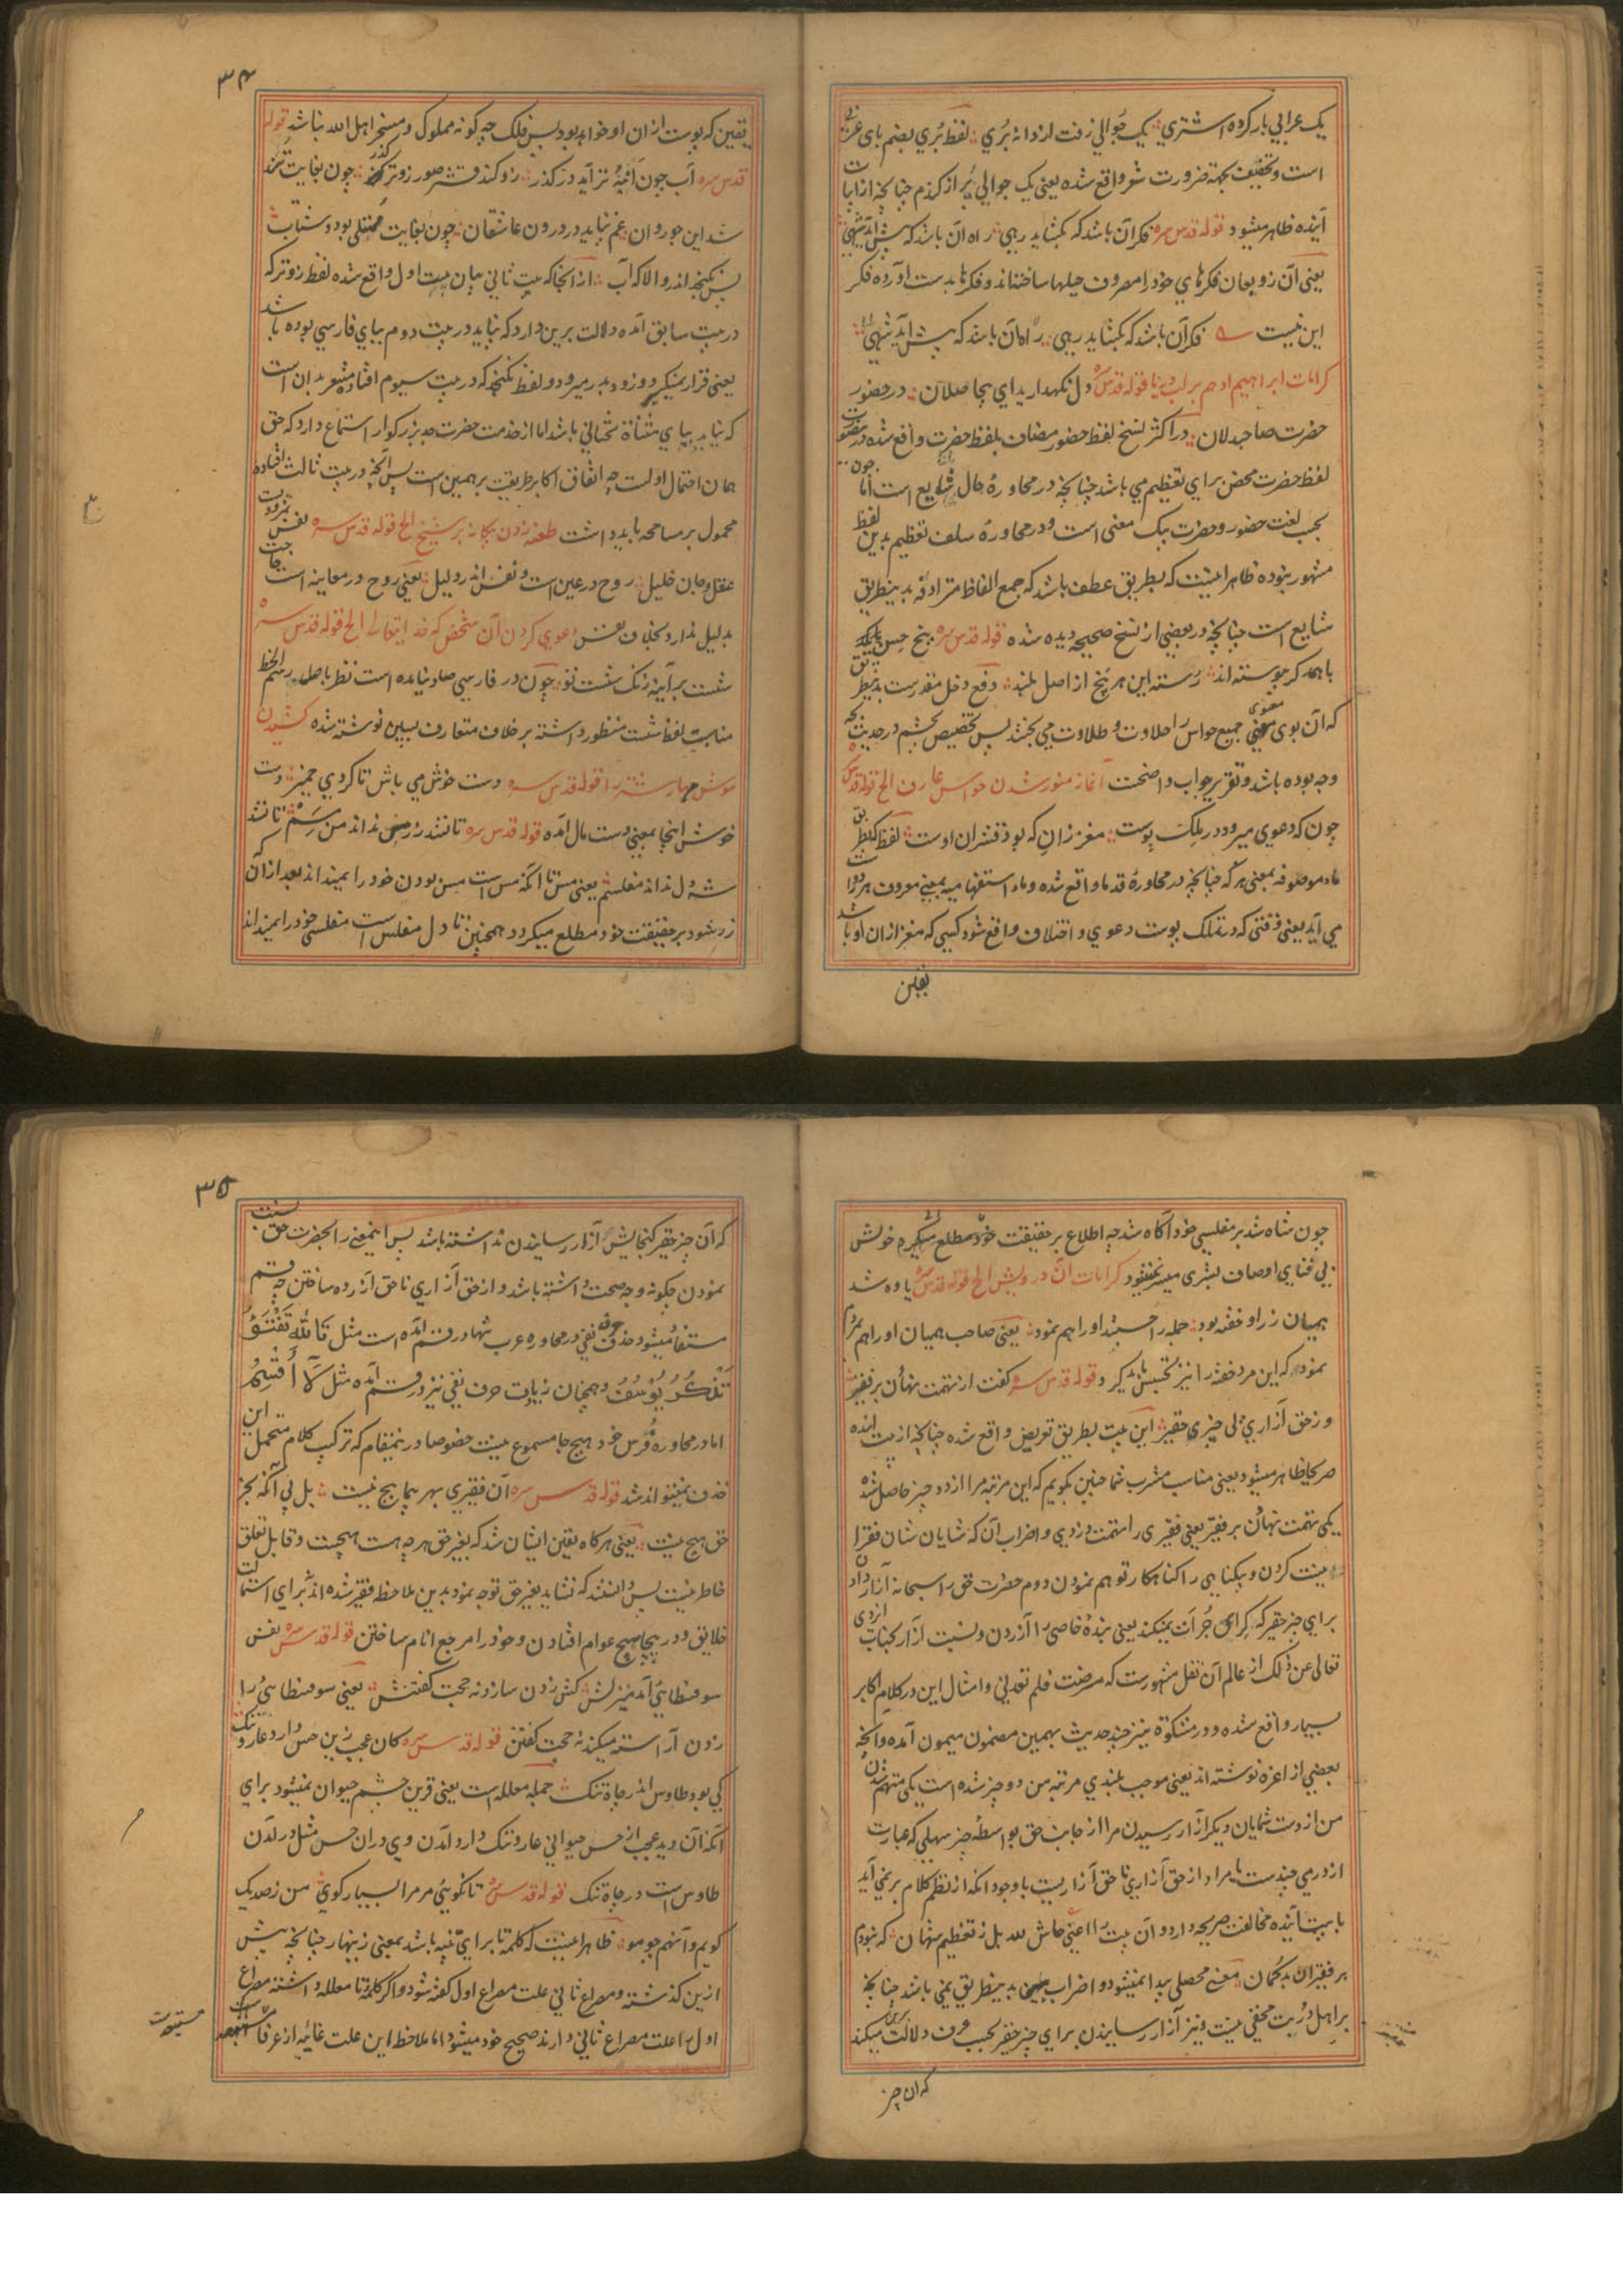 یک عرابی بار کرده اشتری یک جوالی زفت از دانه بُری لفظ بُری بضم بای عربی
است و تخفیف بجهة ضرورت شعر واقع شده یعنی یک جوالی پُر از گندم چنانچه از ابیات
آینده ظاهر میشود قوله قدس سره فکر آن باشد که بکشاید رهی راه آن باشد که پیش آید شهی
یعنی آن زوبعان فکرهای خود را مصروف حیلها ساخته‌اند و فکرها بدست آورده فکر
این نیست فکر آن باشد که بکشاید رهی راه آن باشد که پیش آید شهی
کرامات ابراهیم ادهم بر لب دریا قوله قدس سره دل نگهدارید ای بیحاصلان در حضور
حضرت صاحبدلان در اکثر نسخ لفظ حضور مضاف بلفظ حضرت واقع شده درینصورت
لفظ حضرت محض برای تعظیم می باشد چنانچه در محاورهٔ حال شایع است اما چون
بحسب لغت حضور و حضرت بیک معنی است و در محاورهٔ سلف تعظیم بدین لفظ
مشهور نبوده ظاهرا اینست که بطریق عطف باشد که جمع الفاظ مترادفه بدینطریق
شایع است چنانچه در بعضی از نسخ صحیحه دیده شده قوله قدس سره پنج حس
با همدگر پیوسته‌اند رُسته این هر پنج از اصل بلند دفع دخل مقدرست بدینطریق
که آن بوی معنوی جمیع حواس را حلاوت و طلاوت می بخشد پس تخصیص بچشم در حدیث بچه
وجه بوده باشد و تقریر جواب واضحست آغاز منور شدن حواس عارف الخ قوله قدس سره
چون که دعوی میرود در ملک پوست مغز زانِ که بود قشر ان اوست لفظ که بطریق
ماء موصوفه بمعنی هر که چنانچه در محاورهٔ قدما واقع شده و ماء استفهامیه بمعنی معروف هر دو راست
می آید یعنی وقتی که در تملک پوست دعوی و اختلاف واقع شود کسی که مغز از ان او باشد
یقین
۳۴
یقین که پوست از ان او خواهد بود پس فلک چه گونه مملوک و مسخر اهل الله نباشد قوله
قدس سره آب چون انبه تر آید در گذر زو کند قشر صور زوتر گذر چون بغایت تند
شد این جو روان غم نپاید در درون عاشقان چون بغایت ممتلی بود و شتاب
پس نگنجد اندرو الا که آب از آنجا که بیت ثانی بیان بیت اول واقع شده لفظ زوتر که
در بیت سابق آمده دلالت برین دارد که نپاید در بیت دوم ببای فارسی بوده باشد
یعنی قرار نمیگیرد و زود بدر میرود و لفظ نگنجد که در بیت سیوم افتاده مشعر بدان است
که نیاید بیای مثناة تحتانی باشد اما از خدمت حضرت جد بزرگوار استماع دارد که حق
همان احتمال اولست چه اتفاق اکابر طریقت بر همین است پس آنچه در بیت ثالث افتاده
محمول بر مسامحه باید داشت طعنه زدن بیگانه بر شیخ الخ قوله قدس سره نفس نمرودست
عقل و جان خلیل روح در عین است و نفس اندر دلیل یعنی روح در معاینه است حاجت
بدلیل ندارد بخلاف نفس دعوی کردن آن شخص که خدایتعالی الخ قوله قدس سره
شست بر آیینه زنگ شست تو چون در فارسی صاد نیامده است نظر باصل رسم الخط
مناسبت لفظ شست منظور داشته بر خلاف متعارف بسین نوشته شده کشیدن
موش مهار شتر را قوله قدس سره دست خوش می باش تا گردی خمیر دست
خوش اینجا بمعنی دست مال آمده قوله قدس سره تا نشد زر مس نداند من مِسَم تا نشد
شه دل نداند مفلسم یعنی مس تا آنکه مس است مس بودن خود را نمیداند بعد از آن که
زر شود بر حقیقت خود مطلع میگردد همچنین تا دل مفلس است مفلسی خود را نمیداند
چون شاه شد بر مفلسی خود آگاه شد چه اطلاع بر حقیقت خود مطلع خویش
بی فنای اوصاف بشری میسر نمیشود کرامات آن درویش الخ قوله قدس سره یاوه شد
همیان زر او خفته بود جمله را جستند او را هم نمود یعنی صاحب همیان او را هم بمردم
نمود که این مرد خفته را نیز تجسس باید کرد قوله قدس سره گفت از تهمت نهادن بر فقیر
وز حق آزاری پی چیزی حقیر این بیت بطریق تعریض واقع شده چنانچه از بیت آینده
صریحا ظاهر میشود یعنی مناسب مشرب شما چنین بگویم که این مرتبه مرا از دو چیز حاصل شده
یکی تهمت نهادن بر فقیر یعنی فقیری را متهمت دزدی و اضراب آن که شایان شان فقرا
نیست کردن و بیگناهی را گناهکار توهم نمودن دوم حضرت حق را سبحانه آزار دادن
برای چیز حقیر که کرای جرأت نمیکند یعنی بندهٔ خاصی را آزردن و نسبت آزار بجناب ایزدی
تعالی عن ذلک از عالم آن نقل مشهورست که مرضت فلم تعدنی و امثال این در کلام اکابر
بسیار واقع شده و در مشکوة نیز چند حدیث بهمین مضمون میمون آمده و آنچه
بعضی از اعزه نوشته‌اند یعنی موجب بلندی مرتبه من دو چیز شده است یکی متهم شدن
من از دست شمایان دیگر آزار رسیدن مرا از جانب حق بواسطهٔ چیز سهلی که عبارت
از درمی چندست یا مراد از حق آزاری ناحق آزاریست با وجود آنکه از نظم کلام بر نمی آید
با بیت آینده مخالفت صریحه دارد و آن بیت را اعنی حاش لله بل ز تعظیم شهان که نبودم
بر فقیران بدگمان معنی محصلی پیدا نمیشود و اضراب بدینطریق نمی باشد چنانچه
بر اهل درُبت مخفی نیست و نیز آزار رسانیدن برای چیز حقیر بحسب عرف دلالت برین میکند
که ان چیز
۳۵
که آن چیز حقیر گنجایش آزار رسانیدن نداشته باشد پس اینمعنی را بحضرت حق نسبت
نمودن چگونه وجه صحت داشته باشد و از حق آزاری ناحق آزرده ساختن چه قسم
مستفاد میشود حذف حرف نفی در محاوره عرب تنها در قسم آمده است مثل تَاللَّهِ تَفْتَؤُ
تَذْكُرُ يُوْسُفَ و همچنان زیادت حرف نفی نیز در قسم آمده مثل لَآ أُقْسِمُ
اما در محاورهٔ فُرس خود هیچ جا مسموع نیست خصوصا در ینمقام که ترکیب کلام متحمل این
حذف نمیتواند شد قوله قدس سره آن فقیری بهر پیچاپیچ نیست بل پی آنکه بجز
حق هیچ نیست یعنی هرگاه یقین ایشان شد که بغیر حق هر چه هست هیچست و قابل تعلق
خاطر نیست پس دانستند که نشاید بغیر حق توجه نمود بدین ملاحظه فقیر شده‌اند برای استمالت
خلایق و در پیچاپیچ عوام افتادن و خود را مرجع انام ساختن قوله قدس سره نفس
سوفسطایی آمد میزنش کش زدن سازد نه حجت گفتنش یعنی سوفسطایی را
زدن آراسته میکند نه حجت گفتن قوله قدس سره کان عجب زین حس دارد عار و ننگ
کی بود طاوس اندر چاه تنگ جمله معلله است یعنی قرین چشم حیوان نمیشود برای
آنکه آن دید عجب از حس حیوانی عار و ننگ دارد آمدن وی در ان حس مثل در آمدن
طاوس است در چاه تنگ قوله قدس سره تا نگویی مر مرا بسیار گوی من ز صد یک
گویم و آنهم چو مو ظاهرا اینست که کلمهٔ تا برای تنبیه باشد بمعنی زینهار چنانچه پیش
ازین گذشته و مصراع ثانی علت مصراع اول گفته شود و اگر کلمهٔ تا معلله داشته مصراع
اول را علت مصراع ثانی دارند صحیح خود میشود اما ملاحظه این علت غائیه از عرفا